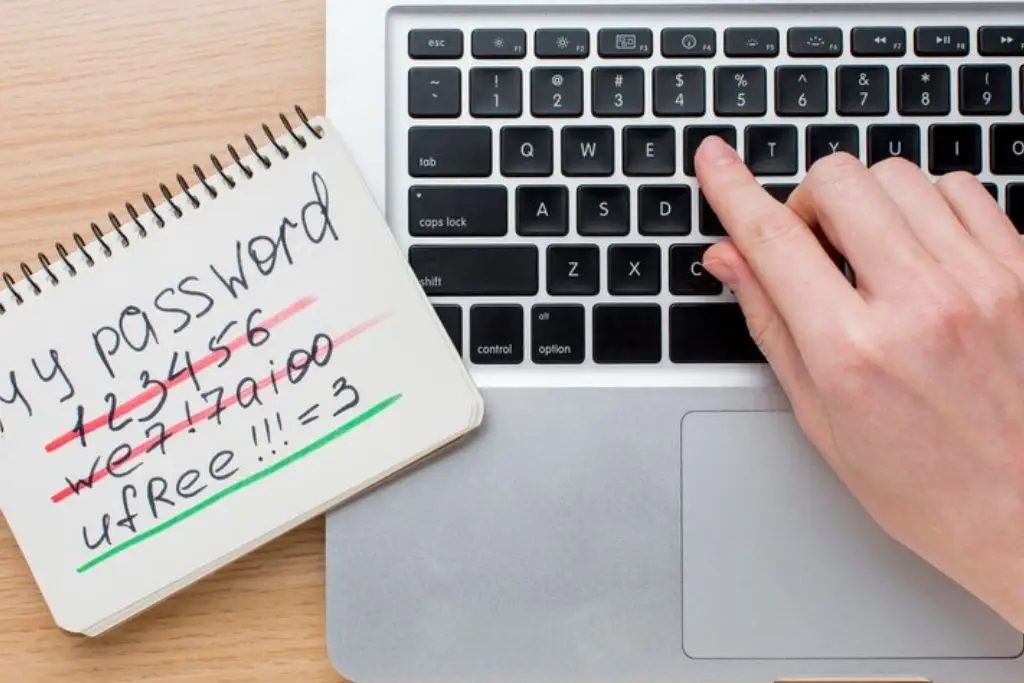 my password
123456
we7!7aioo
ufRee!!!=3
esc F1 F2 F3 F4 F5 F6 F7 F8
~ ` ! 1 @ 2 # 3 $ 4 % 5 ^ 6 & 7 * 8 ( 9
tab Q W E T Y U I O
caps lock A S D
shift Z X C
control alt option